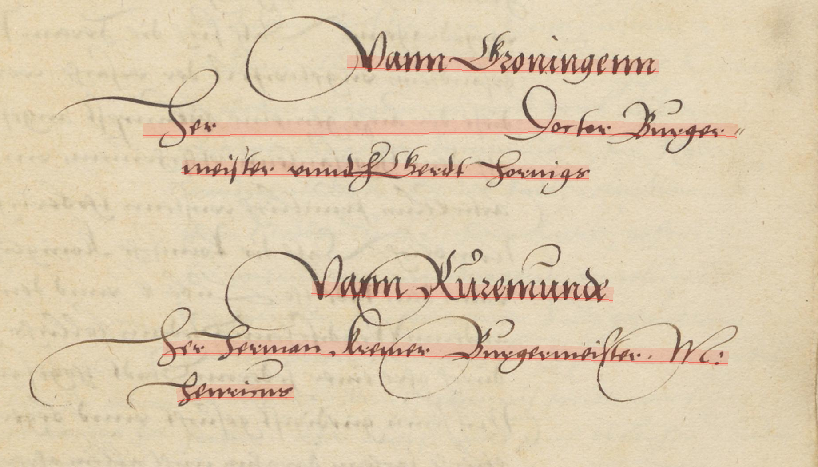 Vann Groningenn
Her Doctor Burger-
meister vnnd H Gerdt Hornigs
Vann Růremunde
Her Herman Kremer Burgermeister. M:
Henricus